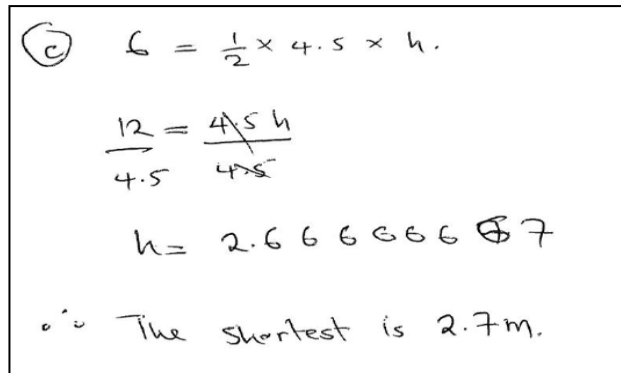 (c) 6 = 1/2 × 4.5 × h.
12/4.5 = 4.5 h/4.5
h = 2.6 6 6 6 6 6 6 7
∴ The shortest is 2.7m.